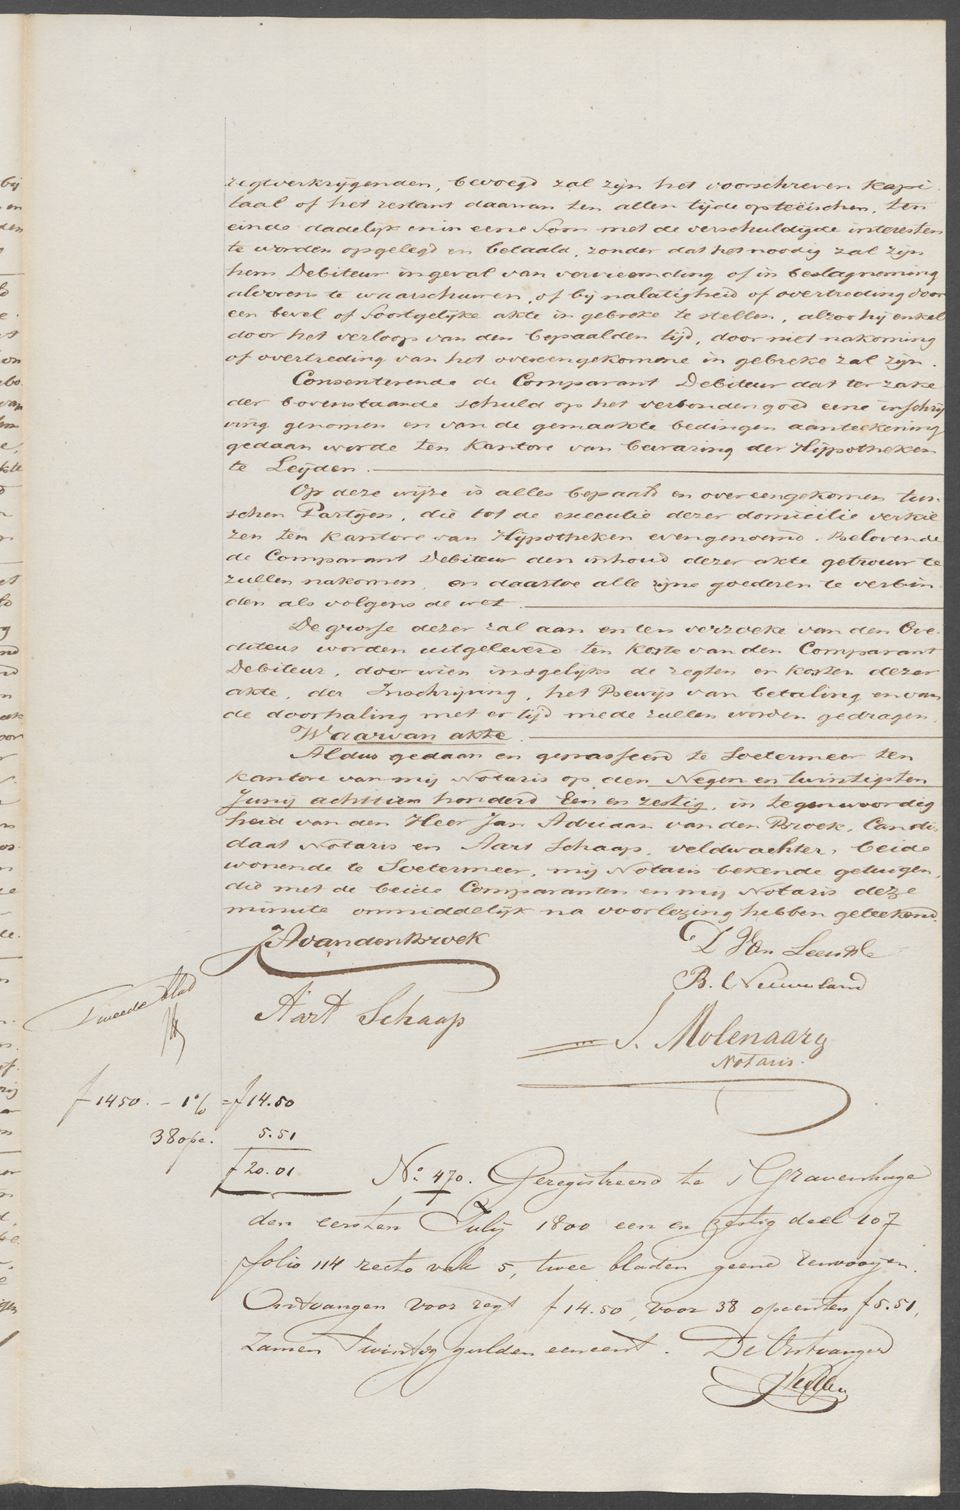 regtverkrijgenden, bevoegd zal zijn het voorschreven Kapi
taal of het restant daarvan ten allen tijde opteëischen, ten
einde dadelijk en in eene Som met de verschuldigde interesten
te worden opgelegd en betaald, zonder dat het noodig zal zijn
hem Debiteur in geval van vervreemding of in beslagneming
alvorens te waarschuwen, of bij nalatigheid of overtreding door
een bevel of Soortgelijke akte in gebreke te stellen, alzoo hij enkel
door het verloop van den bepaalden tijd, door niet nakoming
of overtreding van het overeengekomene in gebreke zal zijn.
Consenterende de Comparant Debiteur dat ter zake
der bovenstaande schuld op het verbonden goed eene inschrij
ving genomen en van de gemaakte bedingen aanteekening
gedaan worde ten Kantore van bewaring der Hijpotheken
te Leijden.
Op deze wijze is alles bepaald en overeengekomen tus
schen Partijen, die tot de executie dezer domicilie verkie
zen ten Kantore van Hijpotheken evengenoemd. Belovende
de Comparant Debiteur den inhoud dezer akte getrouw te
zullen nakomen, en daartoe alle zijne goederen te verbin
den als volgens de wet.
De grosse dezer zal aan en ten verzoeke van den Cre
diteur worden uitgeleverd ten koste van den Comparant
Debiteur, door wien insgelijks de regten en kosten dezer
akte, der Inschrijving, het Bewijs van betaling en van
de doorhaling met er tijd mede zullen worden gedragen.
Waarvan akte.
Aldus gedaan en gepasseerd te Soetermeer ten
kantore van mij Notaris op den Negen en twintigsten
Junij achttien honderd Een en zestig, in tegenwoordig
heid van den Heer Jan Adriaan van den Broek, Candi
daat Notaris en Aart Schaap, veldwachter, beide
wonende te Soetermeer, mij Notaris bekende getuigen,
die met de beide Comparanten en mij Notaris deze
minute onmiddelijk na voorlezing hebben geteekend.
JAvandenBroek
B. Nieuweland
Tweede blad
Aart Schaap
J. Molenaar
Notaris.
f 1450. - 1% = f 14.50
38 opc. 5.51
f 20.01
No. 470. Geregistreerd te s'Gravenhage
den eersten Julij 1800 een en zestig deel 107
folio 114 recto vak 5, twee bladen geene renvooijen.
Ontvangen voor regt f 14.50, voor 38 opcenten f 5.51,
zamen twintig gulden een cent. De Ontvanger